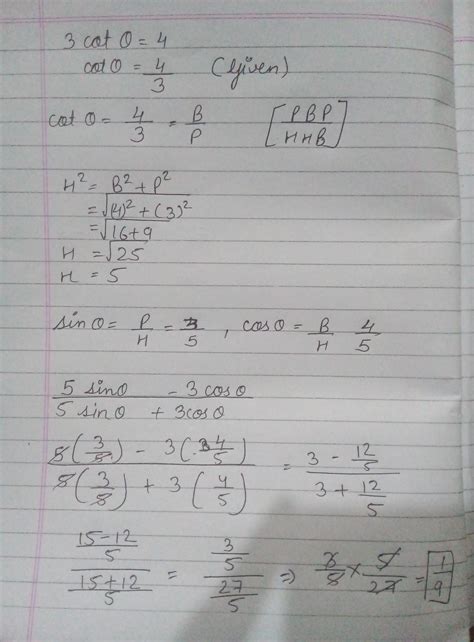 3 cot θ = 4
cot θ = 4/3 (Given)
cot θ = 4/3 = B/P [PBP/HHB]
H² = B² + P²
= √(4)² + (3)²
= √16+9
H = √25
H = 5
sin θ = P/H = 3/5 , cos θ = B/H 4/5
5 sin θ - 3 cos θ / 5 sin θ + 3 cos θ
5(3/5) - 3(4/5) / 5(3/5) + 3(4/5) = 3 - 12/5 / 3 + 12/5
15-12/5 / 15+12/5 = 3/5 / 27/5 ⇒ 3/5 × 5/27 = 1/9